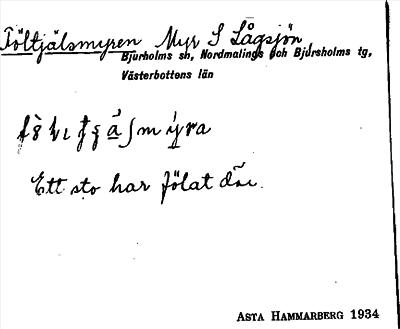 Föltjälsmyren Myr S Lågsjön
Bjurholms sn, Nordmalings och Bjursholms tg,
Västerbottens län
Ett sto har fölat där.
ASTA HAMMARBERG 1934